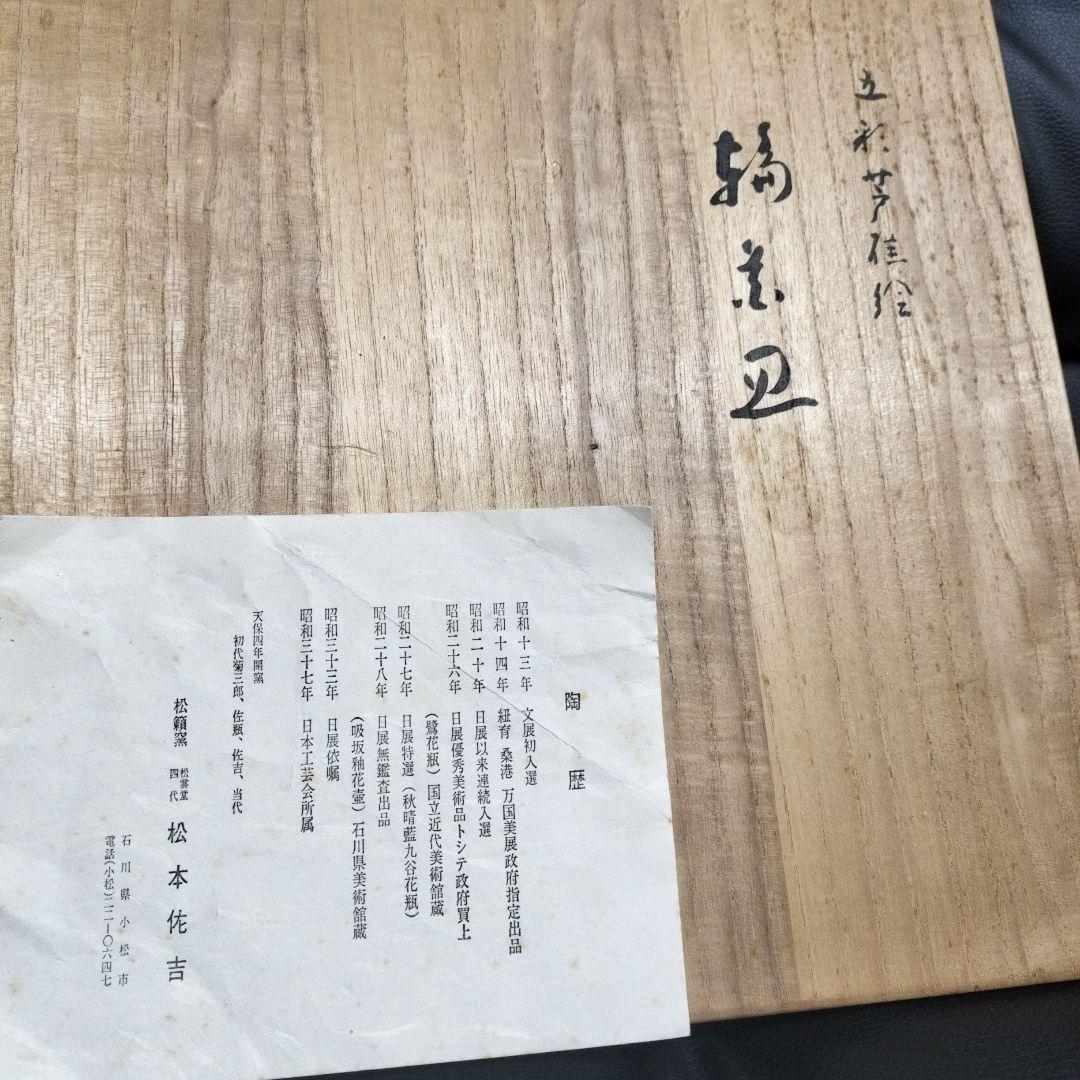 五彩芦雁絵
輪花皿
陶歴
昭和十三年 文展初入選
昭和十四年 紐育 桑港 万国美展政府指定出品
昭和二十年 日展以来連続入選
昭和二十六年 日展優秀美術品トシテ政府買上
(鷺花瓶)国立近代美術館蔵
昭和二十七年 日展特選(秋晴藍九谷花瓶)
昭和二十八年 日展無鑑査出品
(吸坂釉花壷)石川県美術館蔵
昭和三十三年 日展依嘱
昭和三十七年 日本工芸会所属
天保四年開窯
初代菊三郎、佐瓶、佐吉、当代
松籟窯 松雲堂 四代 松本佐吉
石川県小松市
電話(小松)二二一〇六四七